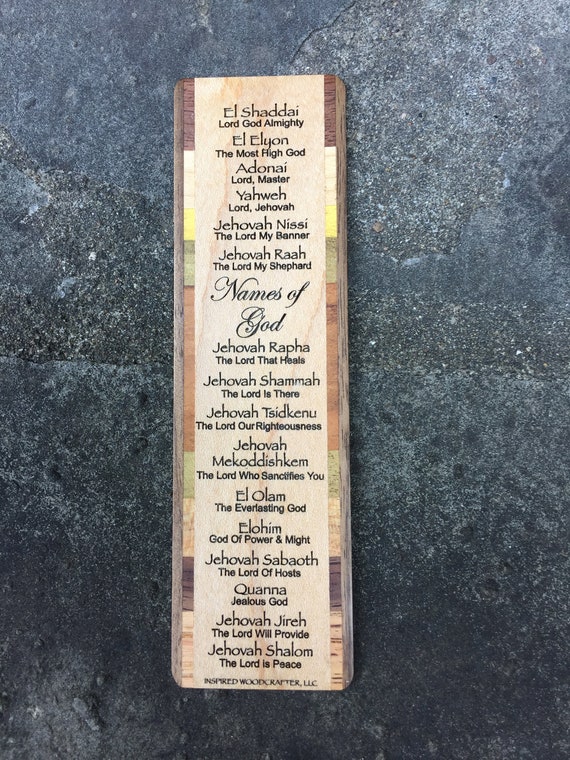 El Shaddai
Lord God Almighty
El Elyon
The Most High God
Adonai
Lord, Master
Yahweh
Lord, Jehovah
Jehovah Nissi
The Lord My Banner
Jehovah Raah
The Lord My Shephard
Names of
God
Jehovah Rapha
The Lord That Heals
Jehovah Shammah
The Lord Is There
Jehovah Tsidkenu
The Lord Our Righteousness
Jehovah
Mekoddishkem
The Lord Who Sanctifies You
El Olam
The Everlasting God
Elohim
God Of Power & Might
Jehovah Sabaoth
The Lord Of Hosts
Quanna
Jealous God
Jehovah Jireh
The Lord Will Provide
Jehovah Shalom
The Lord is Peace
INSPIRED WOODCRAFTER, LLC